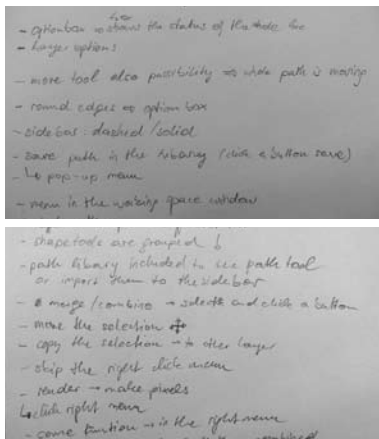 - option box ⇒ shows the status of the whole line
- Layer options
- more tool also possibility ⇒ whole path is moving
- round edges ⇒ option box
- side bar : dashed / solid
- save path in the library (click a button save)
↳ pop-up menu
- menu in the working space window
- shape tools are grouped
- path library included to see path tool
or import them to the sidebar
- merge / combine → select and click a button
- move the selection
- copy the selection → to other layer
- skip the right click menu
- render → make pixels
↳ click right menu
- some function → in the right menu